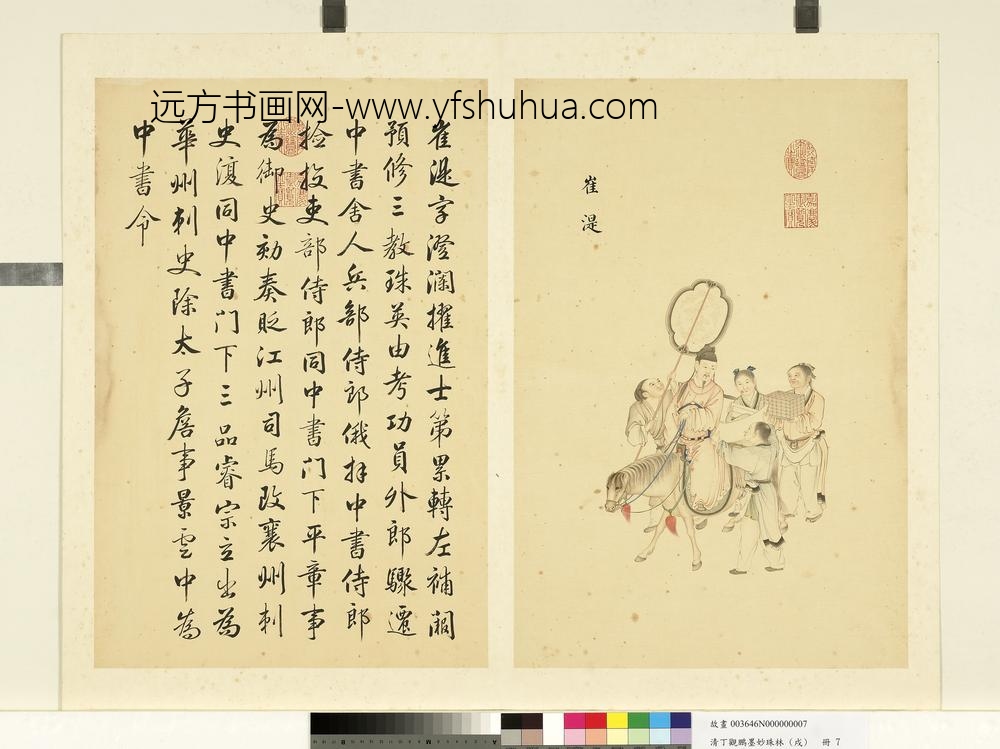 远方书画网-www.yfshuhua.com
崔湜
崔湜字澄瀾擢進士第累轉左補闕
預修三教珠英由考功員外郎驟遷
中書舍人兵部侍郎俄拜中書侍郎
檢校吏部侍郎同中書门下平章事
為御史劾奏貶江州司馬改襄州刺
史復同中書门下三品睿宗立出為
華州刺史除太子詹事景雲中為
中書令
故畫 003646N000000007
清丁觀鵬墨妙珠林（戌） 冊 7